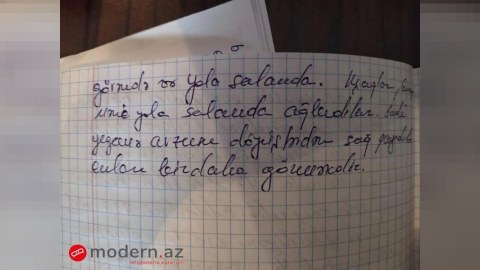 görmək və yola salanda. Uşaqlar,
məni yola salanda ağladılar.
yeganə arzum döyüşdən sağ qayıdıb
onları birdaha görməkdir.
modern.az